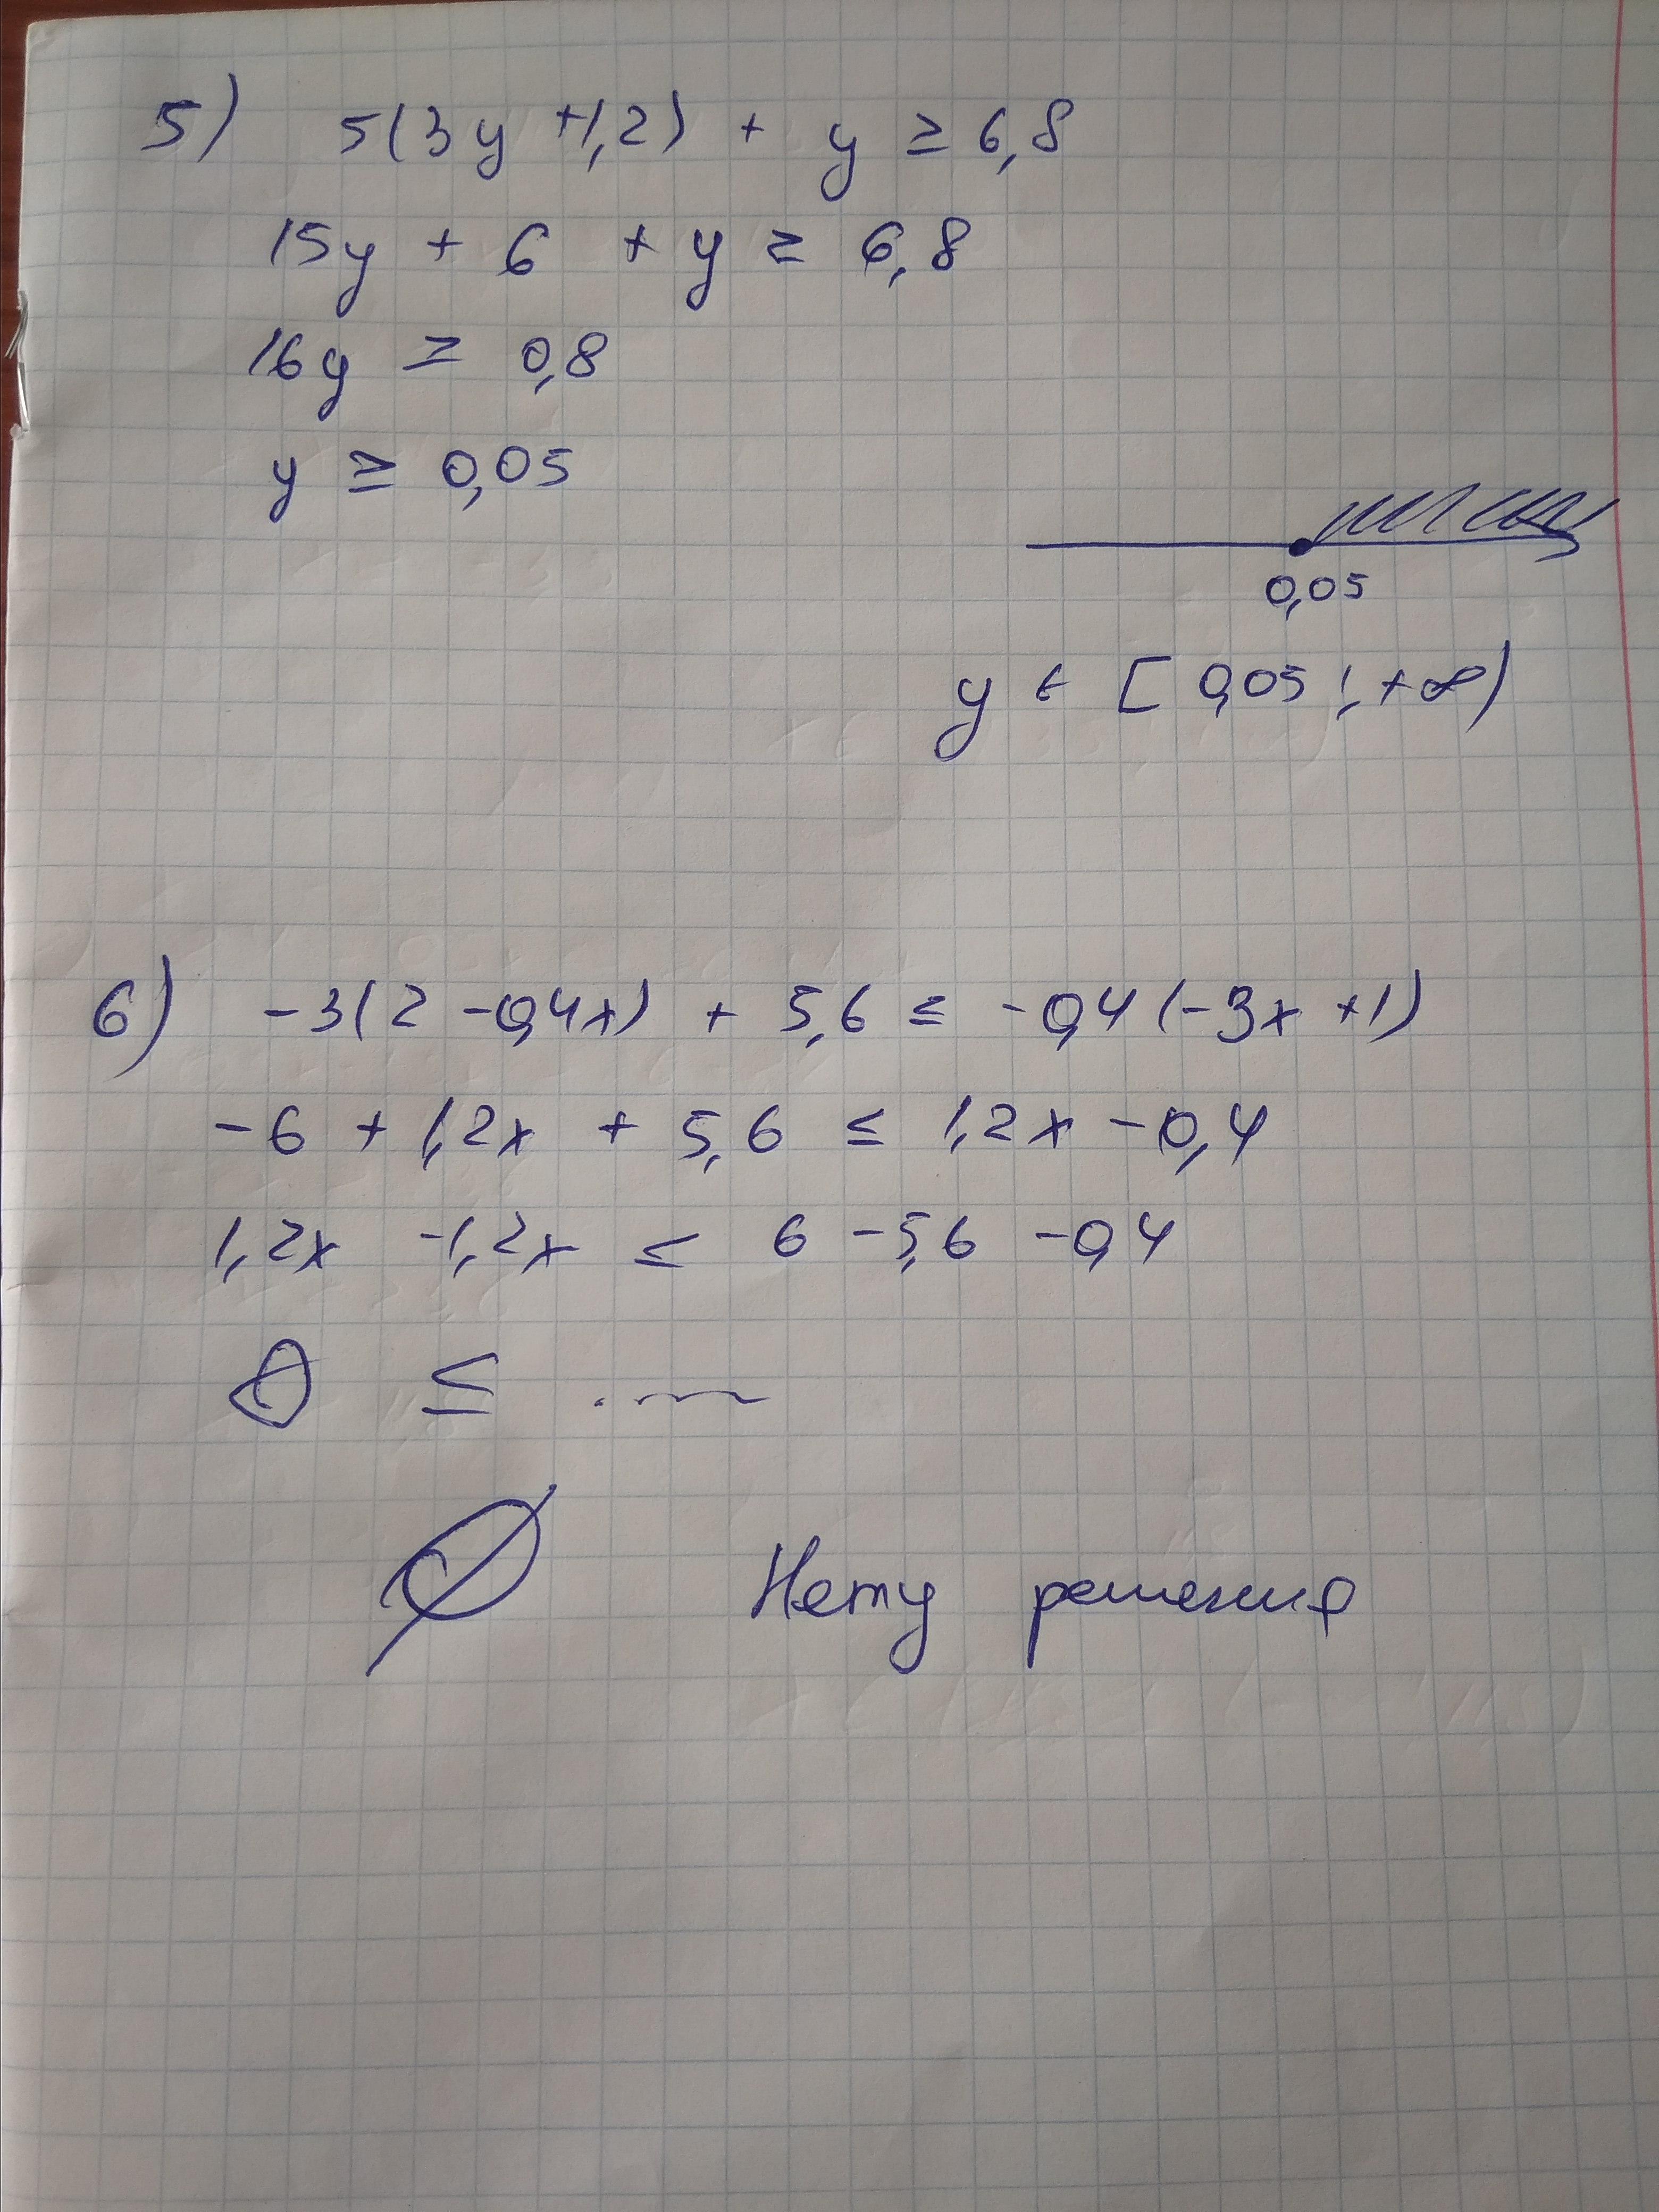 5) 5(3y +1,2) + y ≥ 6,8
15y + 6 + y ≥ 6,8
16y ≥ 0,8
y ≥ 0,05
0,05
y ∈ [0,05 ; +∞)
6) -3(2 -0,4x) + 5,6 ≤ -0,4(-3x +1)
-6 + 1,2x + 5,6 ≤ 1,2x -0,4
1,2x -1,2x ≤ 6 -5,6 -0,4
0 ≤ ....
∅ Нету решения